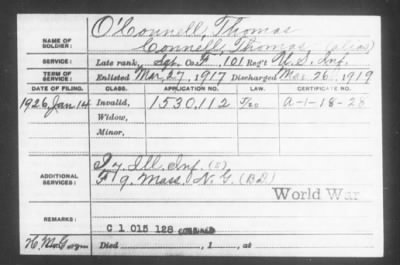 NAME OF SOLDIER: O'Connell, Thomas
Connell, Thomas (alias)
SERVICE: Late rank, Sgt. Co. F, 101 Reg't U.S. Inf.
TERM OF SERVICE: Enlisted Mar. 27, 1917 Discharged Mar. 26, 1919
DATE OF FILING. CLASS. APPLICATION NO. LAW. CERTIFICATE NO.
1926, Jan 14 Invalid, 1530,112 A-1-18-28
Widow,
Minor,
ADDITIONAL SERVICES: 7 Ill. Inf. (S)
F 9. Mass. N. G. (BD)
World War
REMARKS:
C 1 015 128 COMBINED
Died , 1 , at